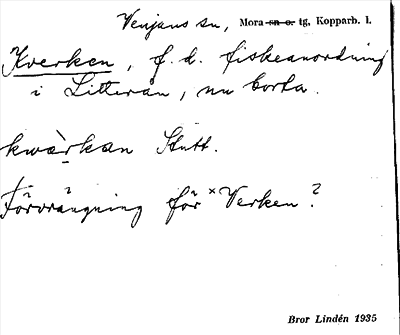 Venjans sn, Mora sn o. tg, Kopparb. l.
Kverken, f. d. fiskeanordning
i Litterån, nu borta.
kwàrkan Stutt.
Förvrängning för ˣVerken?
Bror Lindén 1935